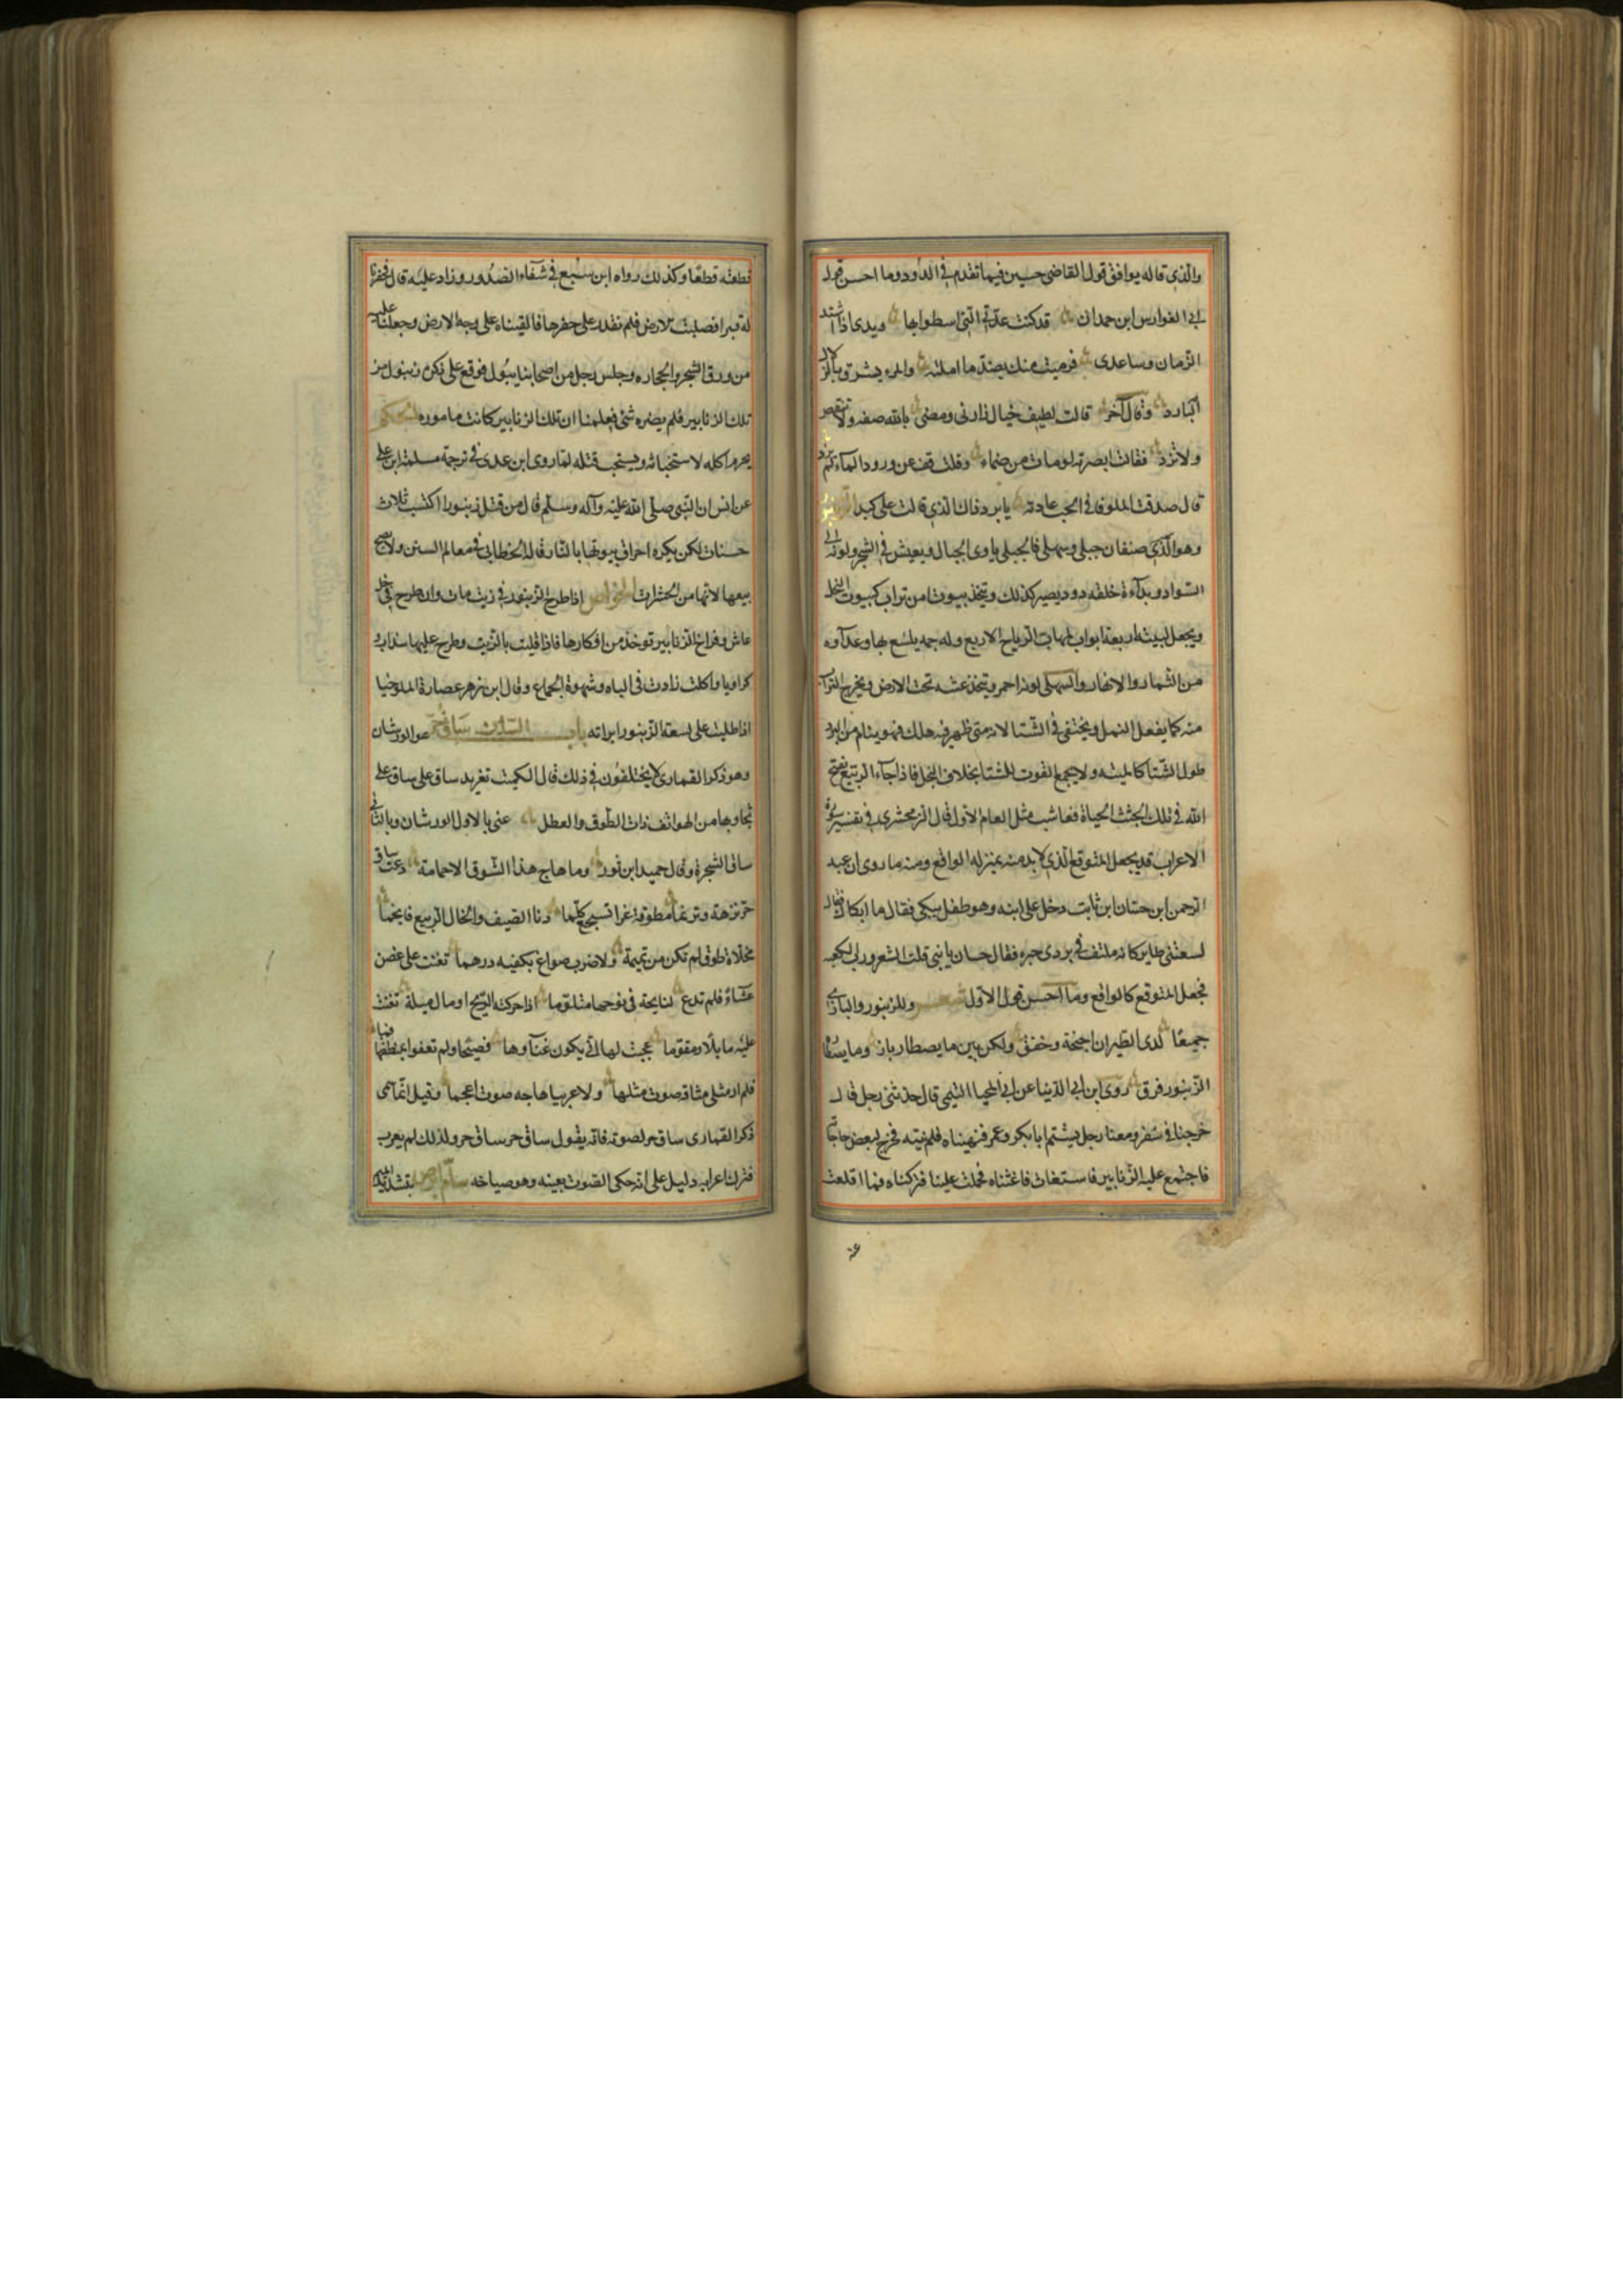 والذي قاله يوافق قول القاضي حسين فيما تقدم في الدود وما احسن قول
ابي الفوارس ابن حمدان قد كنت عدتي التي اسطوا بها ويدي اذا اشتد
الزمان وساعدي فرميت منك بضد ما املته والمرء يشرق بالزلال
البارد وقال آخر قالت لطيف خيال زارني ومضى بالله صفه ولا تنقص
ولا تزد فقلت ابصرته لو مات من ضماء وقلت قف عن ورود الماء لم يرد
قال صدقت الوفا في الحب عادته يا برد ذاك الذي قالت على كبدا
وهو الذي صنفان جبلي وسهلي فالجبلي ياوى الجبال ويعيش في الشجر ولونه الى
السواد وبدآءة خلقه دود يصير كذلك ويتخذ بيوتا من تراب كبيوت النحل
ويجعل لبيته اربعة ابواب لمهاب الرياح الاربع وله حمه يلسع بها وغدآوه
من الثمار والازهار والسهلي لونه احمر ويتخذ عشه تحت الارض ويخرج التراب
منه كما يفعل النمل ويختفي في الشتا لانه متى ظهر فيه هلك فهو ينام من البرد
طول الشتا كالميته ولا يجمع القوت للشتا بخلاف النحل فاذا جآء الربيع نفخ
الله في تلك الجثث الحياة فعاشت مثل العام الاول قال الزمخشري في تفسير سورة
الاعراف قد يجعل المتوقع الذي لا بد منه بمنزله الواقع ومنه ما روى ان عبد
الرحمن ابن حسان ابن ثابت دخل على ابنه وهو طفل يبكي فقال ما ابكاك فقال
لسعتني طاير كانه ملتف في بردى حبره فقال حسان يا بني قلت الشعر ورب الكعبه
فجعل المتوقع كالواقع وما احسن قول الاول وللزنبور والبازي
جميعًا لدى الطيران اجنحة وخفق ولكن بين ما يصطاد باز وما يصطاده
الزنبور فرق روى ابن ابي الدنيا عن ابي المحيا التيمي قال حدثني رجل قال
خرجنا في سفر ومعنا رجل يشتم ابا بكر وعمر فنهيناه فلم ينته فخرج لبعض حاجاته
فاجتمع عليه الزنابير فاستغاث فاغثناه فحملت علينا فتركناه فما اقلعت
قطعته قطعًا وكذلك رواه ابن سبع في شفآء الصدور وزاد عليه قال فحفرنا
له قبرا فصلبت الارض فلم نقدر على حفرها فالقيناه على وجه الارض وجعلنا عليه
من ورق الشجر والحجاره وجلس رجل من اصحابنا يبول فوقع على ذكره زنبول من
تلك الزنابير فلم يضره شئ فعلمنا ان تلك الزنابير كانت ماموره الحكم
يحرم اكله لاستخباثه ويستحب قتله لما روى ابن عدي في ترجمة مسلمة ابن علي
عن انس ان النبي صلى الله عليه وآله وسلم قال من قتل زنبورا اكتسب ثلاث
حسنات لكن يكره احراق بيوتها بالنار قاله الخطابي في معالم السنن ولا يصح
بيعها لانها من الحشرات الخواص اذا طرح الزنبور في زيت مات وان طرح في خل
عاش وفراخ الزنابير توخذ من افكارها فاذا قليت بالزيت وطرح عليها سذاب و
كراويا واكلت زادت في الباه وشهوة الجماع وقال ابن زهر عصارة الملوخيا
اذا طليت على لسعة الزنبور ابراته باب السين ساق حر هو الورشان
وهو ذكر القمارى لا يختلفون في ذلك قال الكميت تغريد ساق على ساق على
تجاوبها من الهواتف ذات الطوق والعطل عني بالاول الورشان وبالثاني
ساق الشجرة وقال حميد ابن ثور وما هاج هذا الشوق الا حمامة دعت ساق
حر نزهة وترنما مطوقة غرا تسجع كلما دنا الصيف وانجال الربيع فانجما
محلاة طوق لم تكن من تميمة ولا ضرب صواغ بكفيه درهما تغنت على غصن
عشاءً فلم تدع لنايحة في نوحها متلوما اذا حركته الريح او مال ميلة تغنت
عليه مايلًا ومقوما عجبت لها انى يكون غنآوها فصيحًا ولم تغفر بمنطقها فما
فلم ار مثلي شاقه صوت مثلها ولا عربيا هاجه صوت اعجما وقيل انما سمى
ذكر القمارى ساق حر لصوته فانه يقول ساق حر ساق حر ولذلك لم يعرب
فترك اعرابه دليل على انه حكى الصوت بعينه وهو صياحه سام ابرص بتشديد الميم